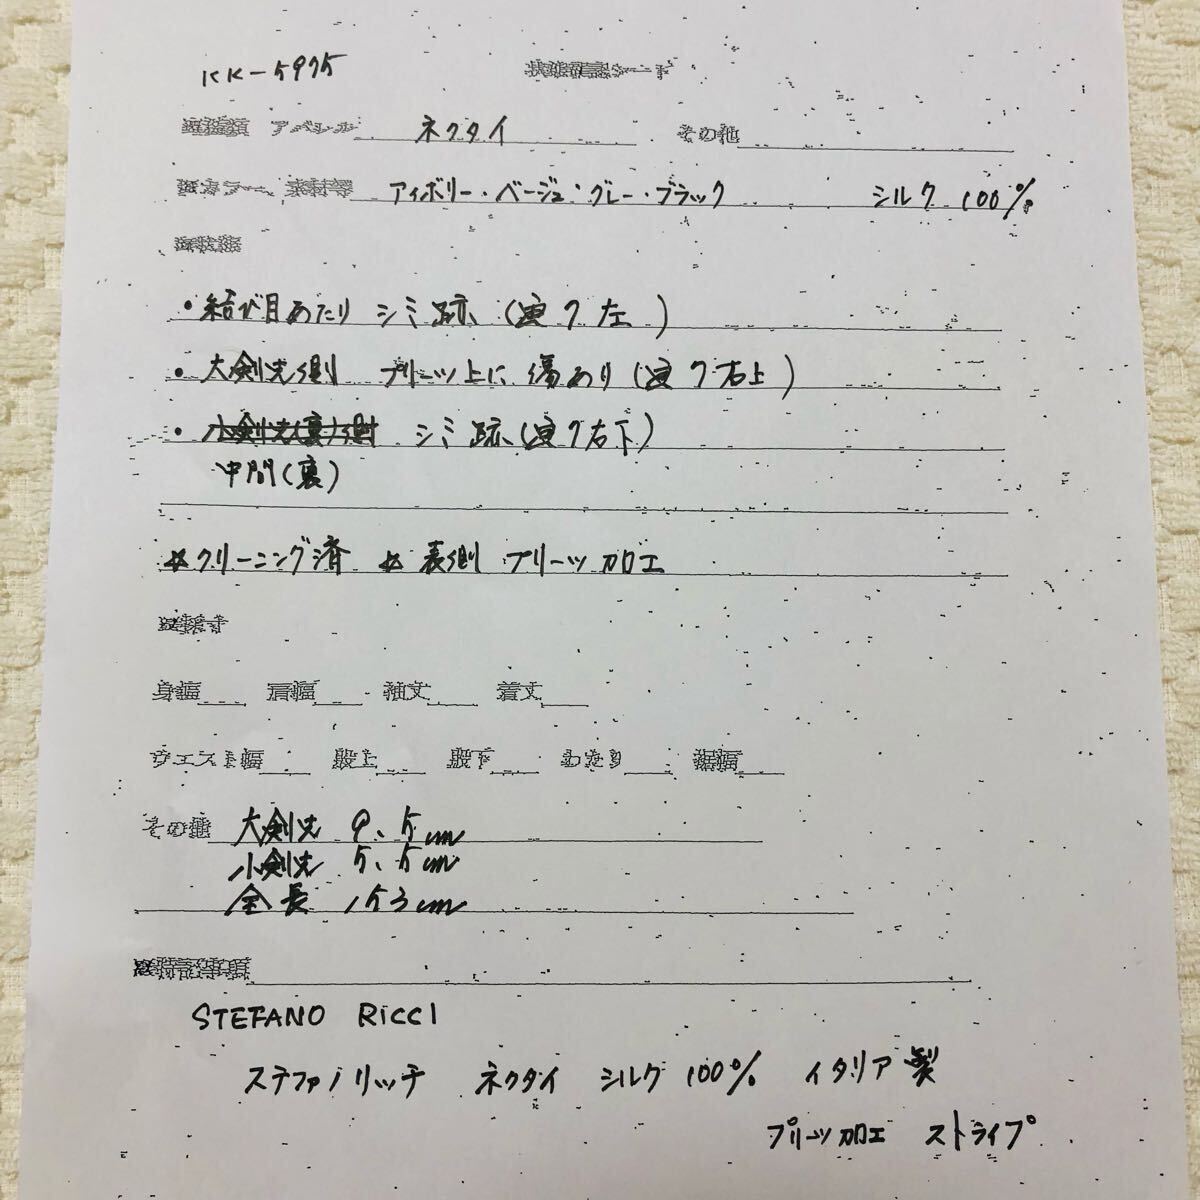 KK-5975 状態確認シート
アパレル ネクタイ その他
カラー、素材等 アイボリー・ベージュ・グレー・ブラック シルク 100%
・結び目あたり シミ跡 (写り左)
・大剣先側 プリーツ上に傷あり(写り右上)
・シミ跡(写り右下)
中間(裏)
☆クリーニング済 ☆表側 プリーツ加工
身幅 肩幅 袖丈 着丈
ウエスト幅 股上 股下 わたり 裾幅
その他 大剣先 9.5cm
小剣先 5.5cm
全長 153cm
STEFANO RICCI
ステファノリッチ ネクタイ シルク 100% イタリア製
プリーツ加工 ストライプ